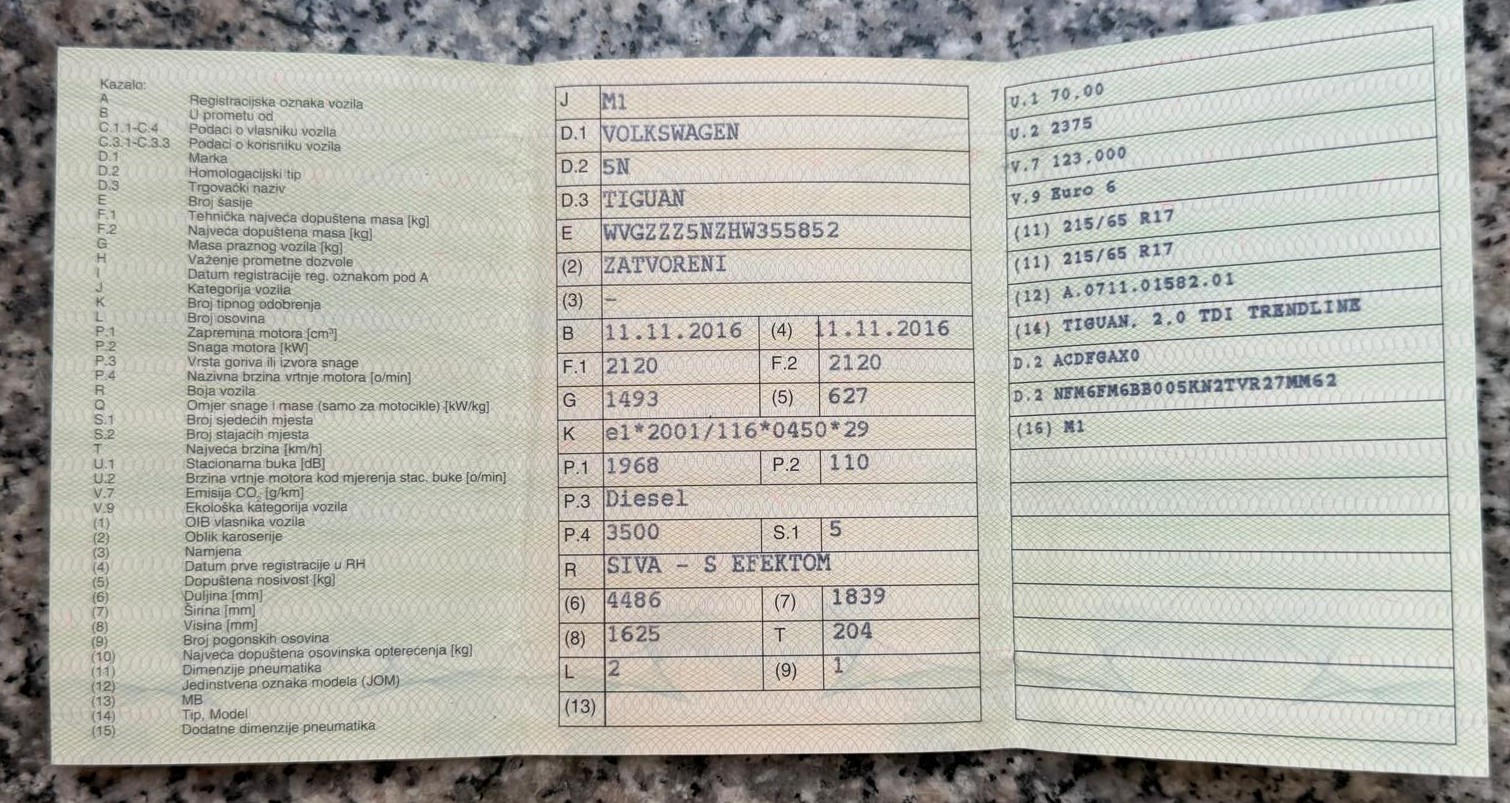 Kazalo:
A Registracijska oznaka vozila
B U prometu od
C.1.1-C.4 Podaci o vlasniku vozila
C.3.1-C.3.3 Podaci o korisniku vozila
D.1 Marka
D.2 Homologacijski tip
D.3 Trgovački naziv
E Broj šasije
F.1 Tehnička najveća dopuštena masa [kg]
F.2 Najveća dopuštena masa [kg]
G Masa praznog vozila [kg]
H Važenje prometne dozvole
I Datum registracije reg. oznakom pod A
J Kategorija vozila
K Broj tipnog odobrenja
L Broj osovina
P.1 Zapremina motora [cm³]
P.2 Snaga motora [kW]
P.3 Vrsta goriva ili izvora snage
P.4 Nazivna brzina vrtnje motora [o/min]
R Boja vozila
Q Omjer snage i mase (samo za motocikle) [kW/kg]
S.1 Broj sjedećih mjesta
S.2 Broj stajaćih mjesta
T Najveća brzina [km/h]
U.1 Stacionarna buka [dB]
U.2 Brzina vrtnje motora kod mjerenja stac. buke [o/min]
V.7 Emisija CO₂ [g/km]
V.9 Ekološka kategorija vozila
(1) OIB vlasnika vozila
(2) Oblik karoserije
(3) Namjena
(4) Datum prve registracije u RH
(5) Dopuštena nosivost [kg]
(6) Duljina [mm]
(7) Širina [mm]
(8) Visina [mm]
(9) Broj pogonskih osovina
(10) Najveća dopuštena osovinska opterećenja [kg]
(11) Dimenzije pneumatika
(12) Jedinstvena oznaka modela (JOM)
(13) MB
(14) Tip, Model
(15) Dodatne dimenzije pneumatika
J M1
D.1 VOLKSWAGEN
D.2 5N
D.3 TIGUAN
E WVGZZZ5NZHW355852
(2) ZATVORENI
(3) –
B 11.11.2016 (4) 11.11.2016
F.1 2120 F.2 2120
G 1493 (5) 627
K e1*2001/116*0450*29
P.1 1968 P.2 110
P.3 Diesel
P.4 3500 S.1 5
R SIVA - S EFEKTOM
(6) 4486 (7) 1839
(8) 1625 T 204
L 2 (9) 1
(13)
U.1 70,00
U.2 2375
V.7 123,000
V.9 Euro 6
(11) 215/65 R17
(11) 215/65 R17
(12) A.0711.01582.01
(14) TIGUAN, 2.0 TDI TRENDLINE
D.2 ACDFGAX0
D.2 NFM6FM6BB005KN2TVR27MM62
(16) M1